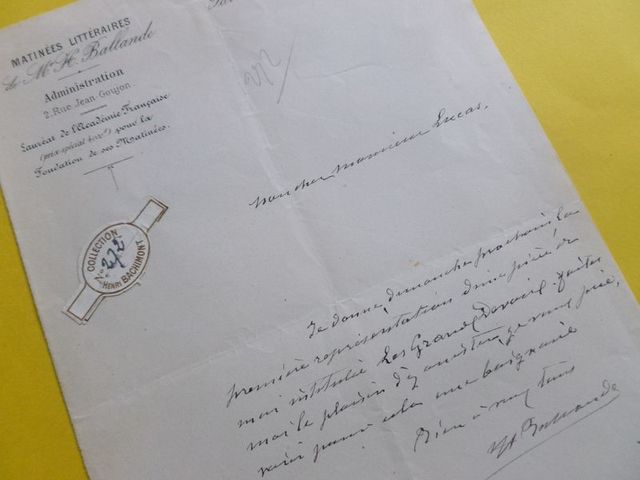 MATINÉES LITTÉRAIRES
de Mr H. Ballande
Administration
2, Rue Jean Goujon
Lauréat de l'Académie Française
(prix spécial 4000f) pour la
Fondation de ses Matinées.
272
COLLECTION
No 272
HENRI BACHIMONT
Mon cher monsieur Lucas,
Je donne, dimanche prochain la
première représentation d'une pièce de
moi intitulée Les Grands Devoirs. faites
moi le plaisir d'y assister, je vous prie,
voici pour cela une baignoire
Bien à vous
H. Ballande